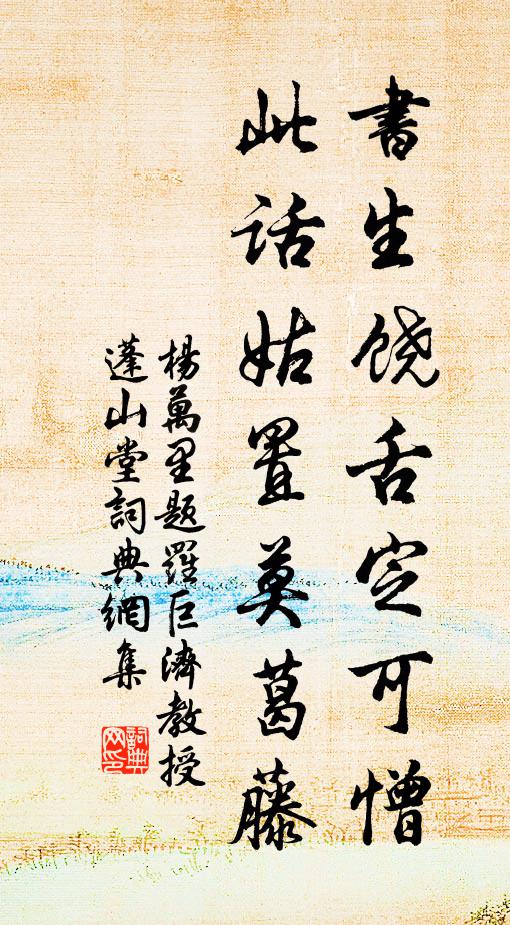 書生饒舌定可憎
此話姑置莫葛藤
楊萬里題羅巨濟教授
蓬山堂詞典網集
詞典網印